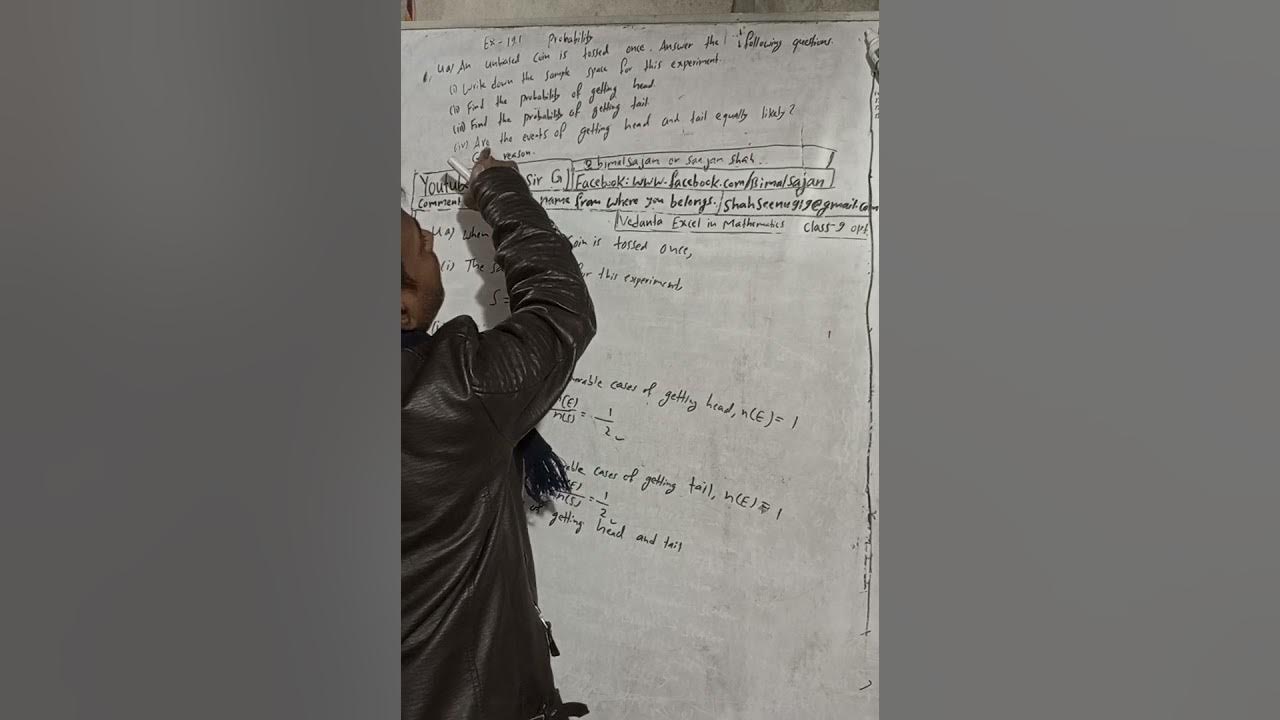 Ex-19.1 Probability
4a) An unbased coin is tossed once. Answer the following questions.
(i) Write down the sample space for this experiment.
(ii) Find the probability of getting head.
(iii) Find the probability of getting tail.
(iv) Are the events of getting head and tail equally likely?
reason.
bimalsajan or sajan shah.
Youtube Sir G Facebook: www.facebook.com/Bimalsajan
Comment name from where you belongs. shahseenu919@gmail.com
Vedanta Excel in Mathematics Class-9 opt
4a) When coin is tossed once,
(i) The for this experiment,
S =
cases of getting head, n(E) = 1
n(S) = 1/2
cases of getting tail, n(E) = 1
n(S) = 1/2
of getting head and tail